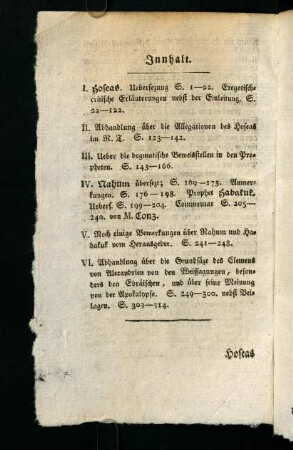 Innhalt.
I. Hoseas. Uebersezung S. 1—22. Exegetisch-
critische Erläuterungen nebst der Einleitung. S.
22—122.
II. Abhandlung über die Allegationen des Hoseas
im N. T. S. 123—142.
III. Ueber die dogmatische Beweisstellen in den Pro-
pheten. S. 143—166.
IV. Nahum übersezt; S. 169—175. Anmer-
kungen. S. 176—198. Prophet Habakuk.
Uebers. S. 199—204. Commentar S. 205—
240. von M. Conz.
V. Noch einige Bemerkungen über Nahum und Ha-
bakuk vom Herausgeber. S. 241—248.
VI. Abhandlung über die Grundsäze des Clemens
von Alexandrien von den Weissagungen, beson-
ders den Ebräischen, und über seine Meinung
von der Apokalypse. S. 249—300. nebst Bei-
lagen. S. 303—314.
Hoseas